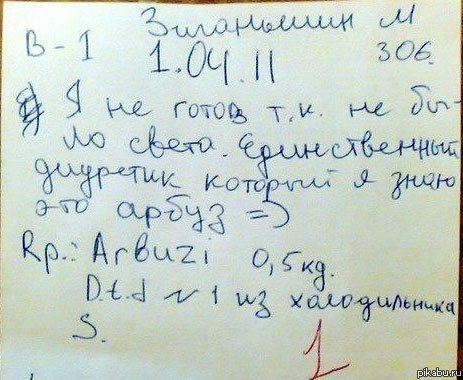 Зиганьшин М
В-I 1.04.11 306.
Я не готов т.к. не бы-
ло света. Единственный
диуретик который я знаю
это арбуз =)
Rp.: Arbuzi 0,5 кг.
D.t.d N 1 из холодильника
S.
1
pikabu.ru